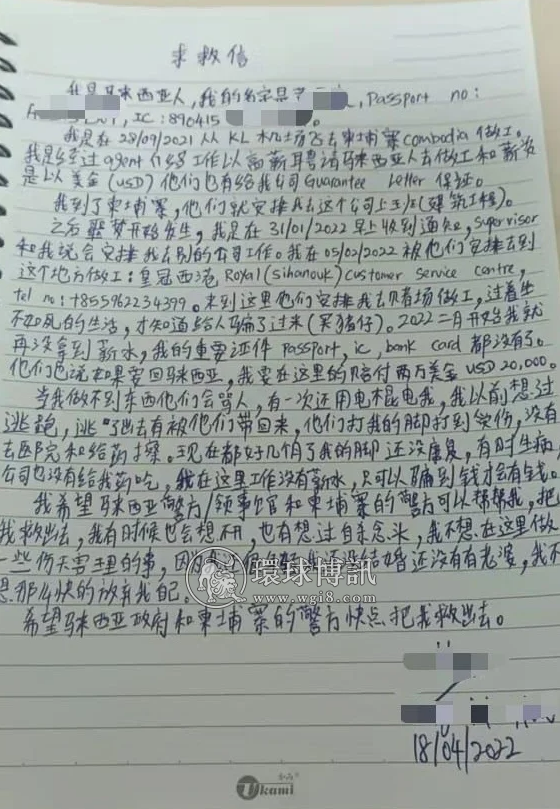 求救信
我是马来西亚人，我的名字是 , Passport no:
, IC: 890415 。
我是在28/09/2021 从 KL 机场飞去柬埔寨 Combodia 做工。
我是经过 agent 介绍工作以高薪聘请马来西亚人去做工和薪资
是以美金 (USD) 他们也有给我公司 Guarantee Letter 保证。
我到了柬埔寨，他们就安排我去这个公司上班(建筑工程)。
之后噩梦开始发生，我是在31/01/2022 早上收到通知, supervisor
和我说会安排我去别的公司工作。我在05/02/2022 被他们安排去到
这个地方做工：皇冠西港 Royal (sihanouk) customer service centre,
tel no: +855962234399。来到这里他们安排我去赌场做工，过着生
不如死的生活，才知道给人骗了过来(买猪仔)。2022二月开始我就
再没拿到薪水，我的重要证件 passport, ic, bank card 都没有了。
他们也说如果要回马来西亚，我要在这里的赔付两万美金 USD 20,000。
当我做不到东西他们会骂人，有一次还用电棍电我，我以前想过
逃跑，逃了出去有被他们带回来，他们打我的脚打到受伤，没有
去医院和给药擦。现在都好几个月了我的脚还没康复，有时生病，
公司也没有给我药吃，我在这里工作没有薪水，只可以骗到钱才会有钱。
我希望马来西亚警方/领事馆和柬埔寨的警方可以帮帮我，把
我救出去，我有时候也会想不开，也有想过自杀念头，我不想在这里做
一些伤天害理的事，因 我还没结婚还没有有老婆，我不
想那么快的放弃我自己。
希望马来西亚政府和柬埔寨的警方快点把我救出去。
18/04/2022
環球博訊
www.wgi8.com
Ukami